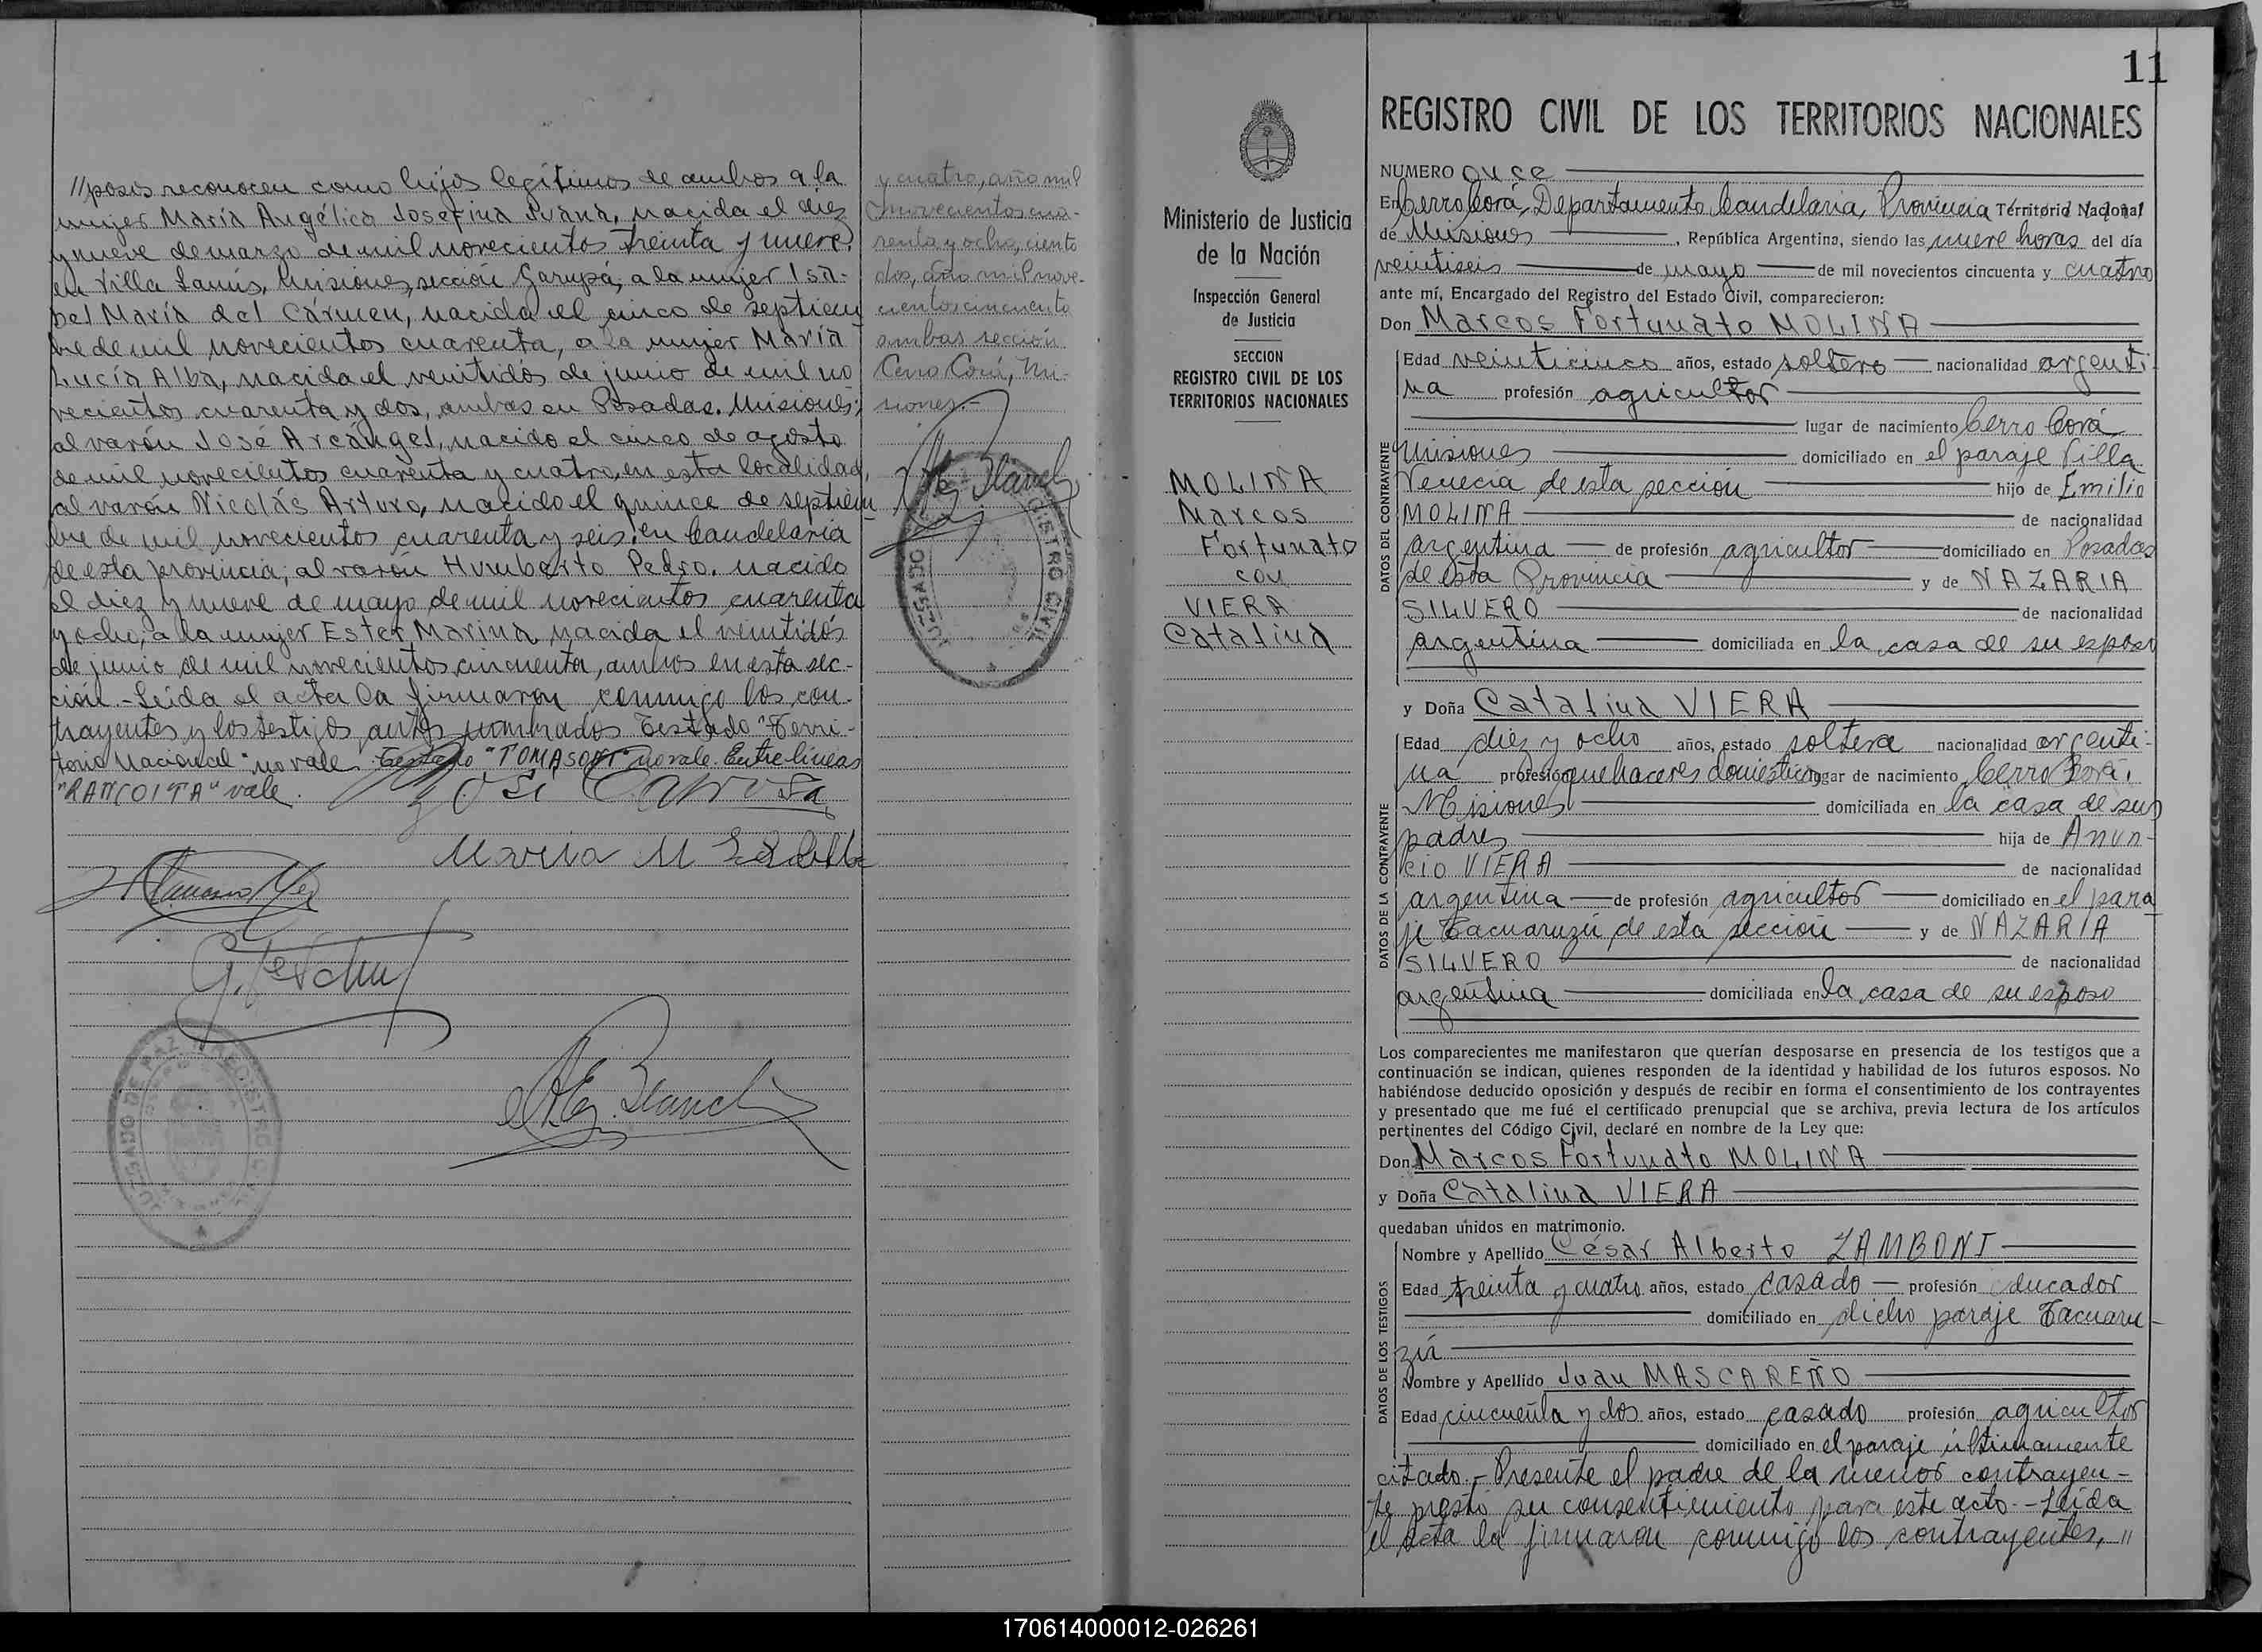 //posos reconocen como hijos legítimos de ambos a la
mujer María Angélica Josefina Juana, nacida el diez
y nueve de marzo de mil novecientos treinta y nueve,
en Villa Lanús, Misiones, sección Garupá; a la mujer Isa-
bel María del Cármen, nacida el cinco de septiem
bre de mil novecientos cuarenta, a la mujer María
Lucía Alba, nacida el veintidós de junio de mil no
vecientos cuarenta y dos, ambas en Posadas. Misiones;
al varón José Arcángel, nacido el cinco de agosto
de mil novecientos cuarenta y cuatro, en esta localidad,
al varón Nicolás Arturo, nacido el quince de septiem
bre de mil novecientos cuarenta y seis, en Candelaria
de esta provincia; al varón Humberto Pedro, nacido
el diez y nueve de mayo de mil novecientos cuarenta
y ocho; a la mujer Ester Marina, nacida el veintidós
de junio de mil novecientos cincuenta, ambos en esta sec-
ción.- Leída el acta la firmaron conmigo los con-
trayentes y los testigos antes nombrados. Testado "Terri-
torio Nacional" no vale. Testado "TOMASONI" no vale. Entre líneas
"RANCOITA" vale.
y cuatro, año mil
novecientos cua-
renta y ocho, ciento
dos, año mil nove-
cientos cincuenta
ambas sección
Cerro Corá, Mi-
siones.-
JUZGADO DE PAZ Y REGISTRO CIVIL
11
Ministerio de Justicia
de la Nación
Inspección General
de Justicia
SECCION
REGISTRO CIVIL DE LOS
TERRITORIOS NACIONALES
MOLINA
Marcos
Fortunato
con
VIERA
Catalina
REGISTRO CIVIL DE LOS TERRITORIOS NACIONALES
NUMERO once
En Cerro Corá, Departamento Candelaria, Provincia Territorio Nacional
de Misiones, República Argentina, siendo las nueve horas del día
veintiseis de mayo de mil novecientos cincuenta y cuatro
ante mí, Encargado del Registro del Estado Civil, comparecieron:
Don Marcos Fortunato MOLINA
DATOS DEL CONTRAYENTE
Edad veinticinco años, estado soltero nacionalidad argenti-
na profesión agricultor
lugar de nacimiento Cerro Corá
Misiones domiciliado en el paraje Villa
Venecia de esta sección hijo de Emilio
MOLINA de nacionalidad
argentina de profesión agricultor domiciliado en Posadas
de esta Provincia y de NAZARIA
SILVERO de nacionalidad
argentina domiciliada en la casa de su esposo
y Doña Catalina VIERA
DATOS DE LA CONTRAYENTE
Edad diez y ocho años, estado soltera nacionalidad argenti-
na profesión quehaceres domésticos lugar de nacimiento Cerro Corá,
Misiones domiciliada en la casa de sus
padres hija de Anun-
cio VIERA de nacionalidad
argentina de profesión agricultor domiciliado en el para
je Tacuaruzú de esta sección y de NAZARIA
SILVERO de nacionalidad
argentina domiciliada en la casa de su esposo
Los comparecientes me manifestaron que querían desposarse en presencia de los testigos que a
continuación se indican, quienes responden de la identidad y habilidad de los futuros esposos. No
habiéndose deducido oposición y después de recibir en forma el consentimiento de los contrayentes
y presentado que me fué el certificado prenupcial que se archiva, previa lectura de los artículos
pertinentes del Código Civil, declaré en nombre de la Ley que:
Don Marcos Fortunato MOLINA
y Doña Catalina VIERA
quedaban unidos en matrimonio.
DATOS DE LOS TESTIGOS
Nombre y Apellido César Alberto ZAMBONI
Edad treinta y cuatro años, estado casado profesión educador
domiciliado en dicho paraje Tacuaru-
zú
Nombre y Apellido Juan MASCAREÑO
Edad cincuenta y dos años, estado casado profesión agricultor
domiciliado en el paraje últimamente
citado.- Presente el padre de la menor contrayen-
te prestó su consentimiento para este acto.- Leída
el acta la firmaron conmigo los contrayentes, //
170614000012-026261